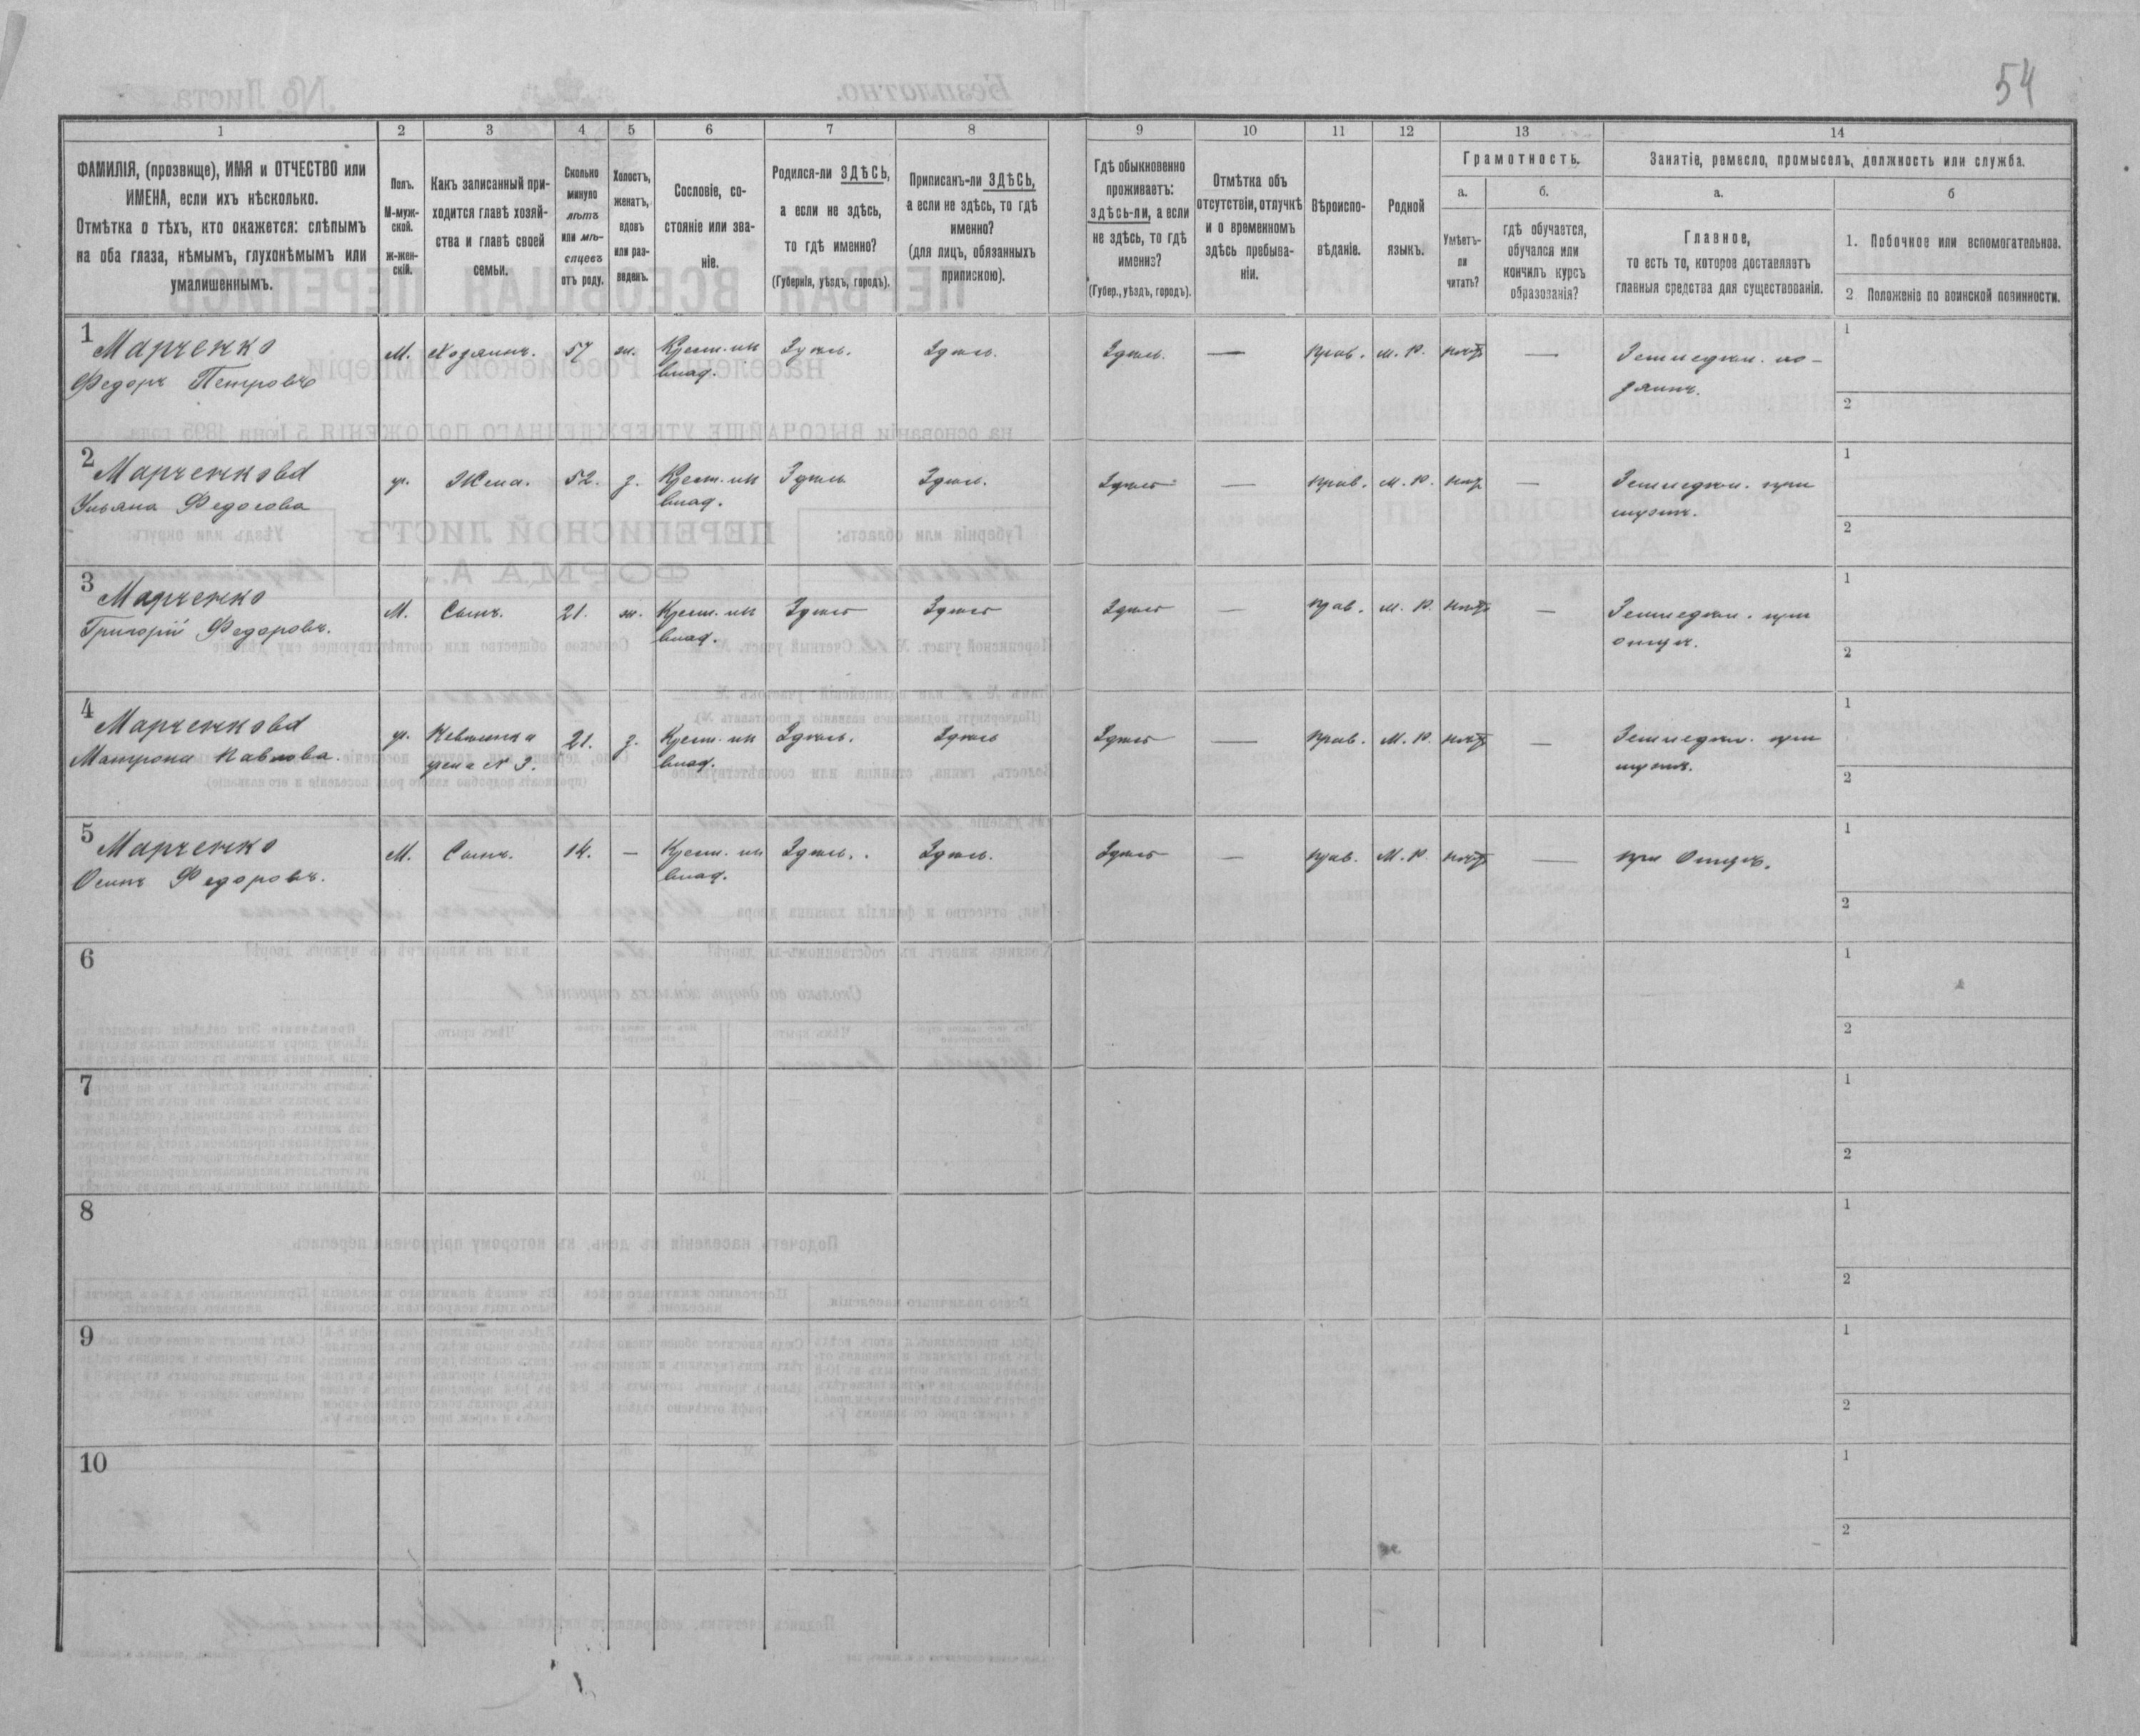 54
1 2 3 4 5 6 7 8 9 10 11 12 13 14
ФАМИЛІЯ, (прозвище), ИМЯ и ОТЧЕСТВО или
ИМЕНА, если ихъ нѣсколько.
Отмѣтка о тѣхъ, кто окажется: слѣпымъ
на оба глаза, нѣмымъ, глухонѣмымъ или
умалишеннымъ.
Полъ.
М-муж-
ской.
ж-жен-
скій.
Какъ записанный при-
ходится главѣ хозяй-
ства и главѣ своей
семьи.
Сколько
минуло
лѣтъ
или мѣ-
сяцевъ
отъ роду.
Холостъ,
женатъ,
вдовъ
или раз-
веденъ.
Сословіе, со-
стояніе или зва-
ніе.
Родился-ли ЗДѢСЬ,
а если не здѣсь,
то гдѣ именно?
(Губернія, уѣздъ, городъ).
Приписанъ-ли ЗДѢСЬ,
а если не здѣсь, то гдѣ
именно?
(для лицъ, обязанныхъ
припискою).
Гдѣ обыкновенно
проживаетъ:
здѣсь-ли, а если
не здѣсь, то гдѣ
именно?
(Губер., уѣздъ, городъ).
Отмѣтка объ
отсутствіи, отлучкѣ
и о временномъ
здѣсь пребыва-
ніи.
Вѣроиспо-
вѣданіе.
Родной
языкъ.
Грамотность.
а.
Умѣетъ-
ли
читать?
б.
гдѣ обучается,
обучался или
кончилъ курсъ
образованія?
Занятіе, ремесло, промыселъ, должность или служба.
а.
Главное,
то есть то, которое доставляетъ
главныя средства для существованія.
б
1. Побочное или вспомогательное.
2 Положеніе по воинской повинности.
1 Марченко М. Хозяинъ. 57 ж. Крест. из Здѣсь. Здѣсь. Здѣсь. — прав. м. р. нѣтъ — Земледѣл. хо- 1
Федоръ Петровъ влад. зяинъ. 2
2 Марченкова ж. Жена. 52. з. Крест. из Здѣсь Здѣсь. Здѣсь — прав. м. р. — Земледѣл. при 1
Ульяна Федосова влад. мужѣ. 2
3 Марченко М. Сынъ. 21. ж. Крест. из Здѣсь Здѣсь Здѣсь — прав. м. р. нѣтъ — Земледѣл. при 1
Григорій Федоровъ. влад. отцѣ. 2
4 Марченкова ж. Невѣстка 21. з. Крест. из Здѣсь. Здѣсь Здѣсь — прав. м. р. нѣтъ — Земледѣл. при 1
Матрона Павлова жена N 3. влад. мужѣ. 2
5 Марченко М. Сынъ. 14. — Крест. из Здѣсь. Здѣсь. Здѣсь — прав. М. р. нѣтъ — при Отцѣ. 1
Осипъ Федоровъ. влад. 2
6 1
2
7 1
2
8 1
2
9 1
2
10 1
2